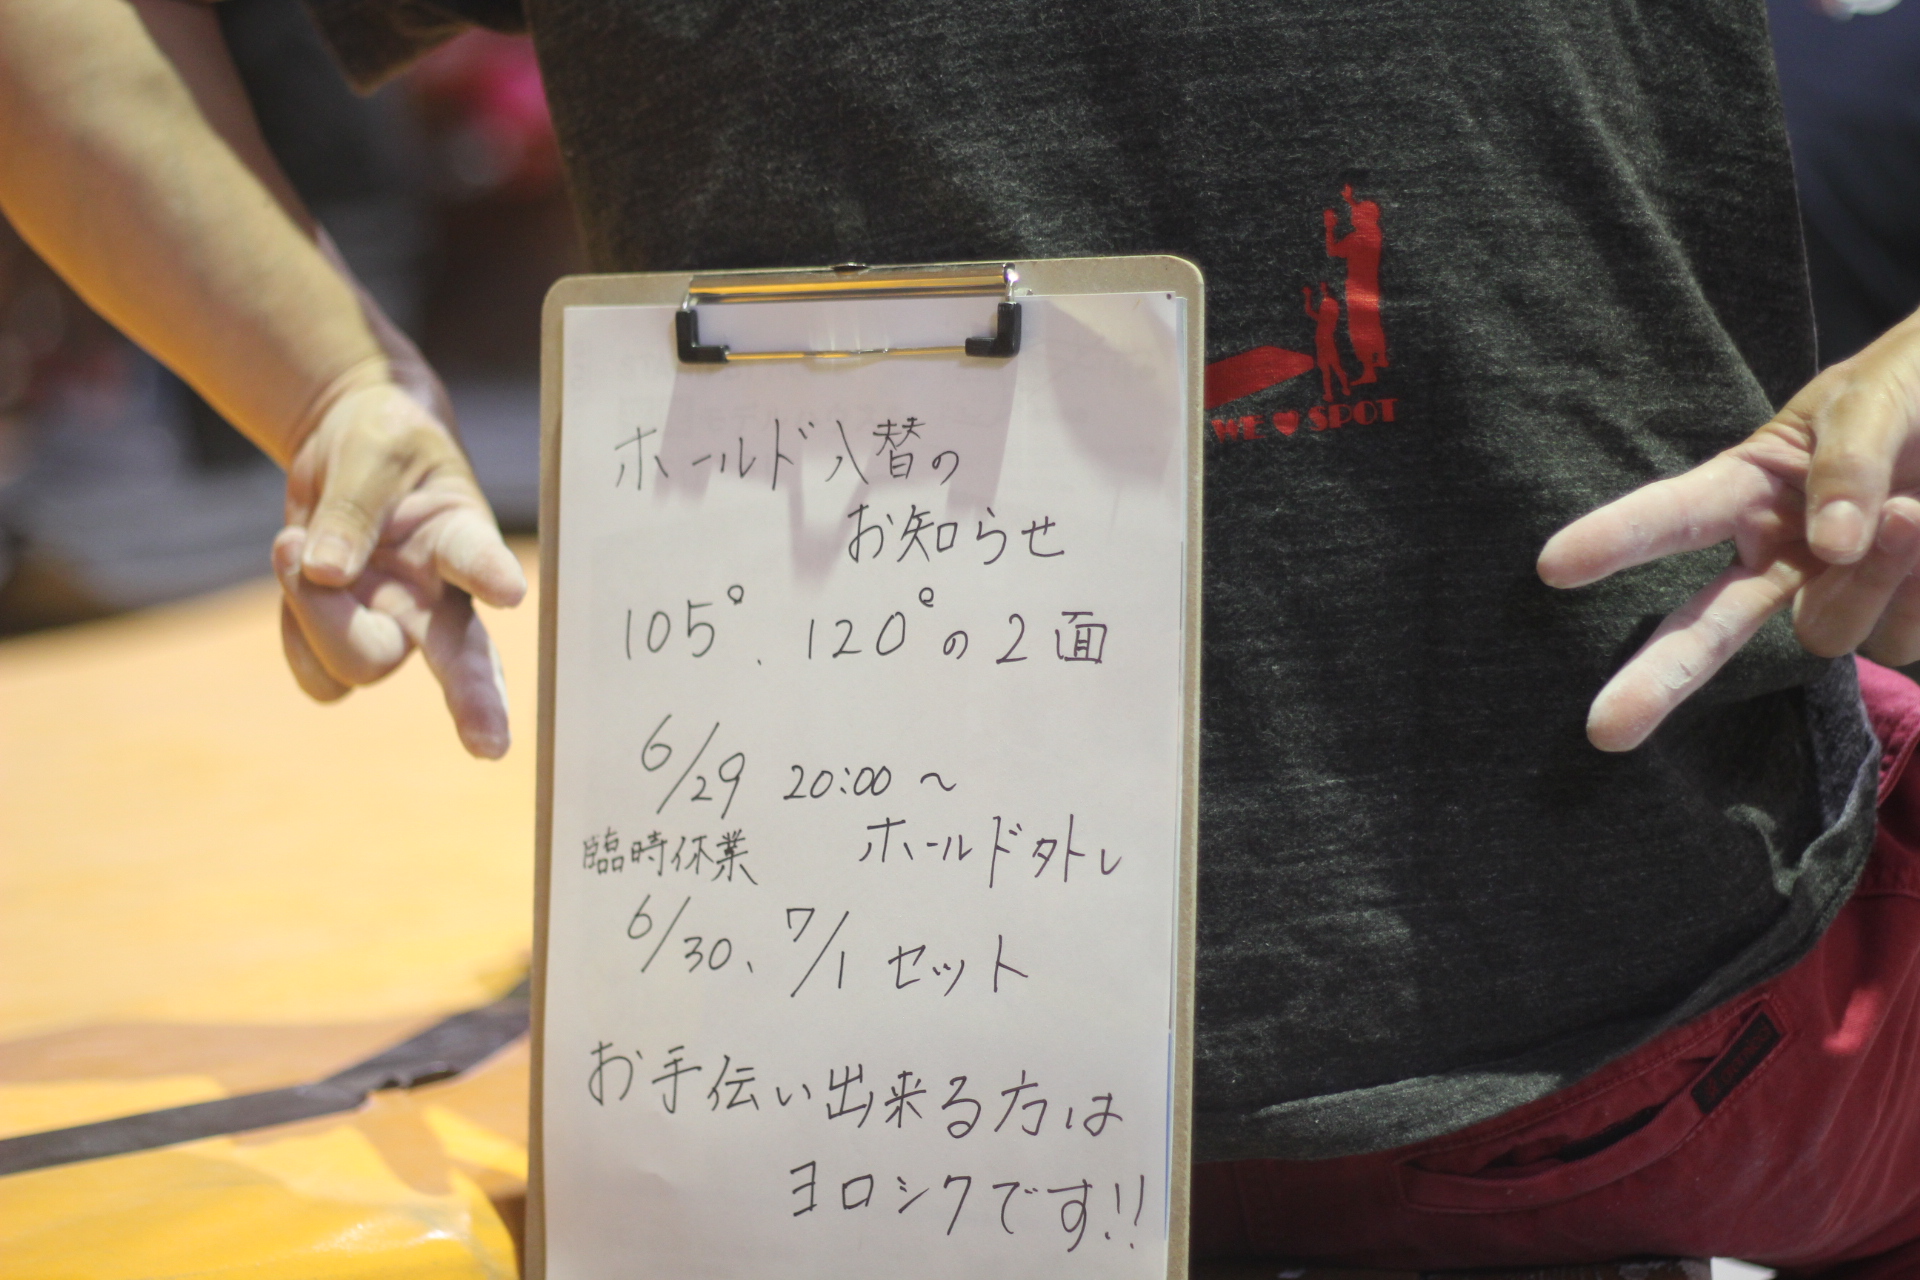 ホールド入替の
お知らせ
105°、120°の2面
6/29 20:00～
ホールド外し
臨時休業
6/30、7/1 セット
お手伝い出来る方は
ヨロシクです!!
WE ♥ SPOT